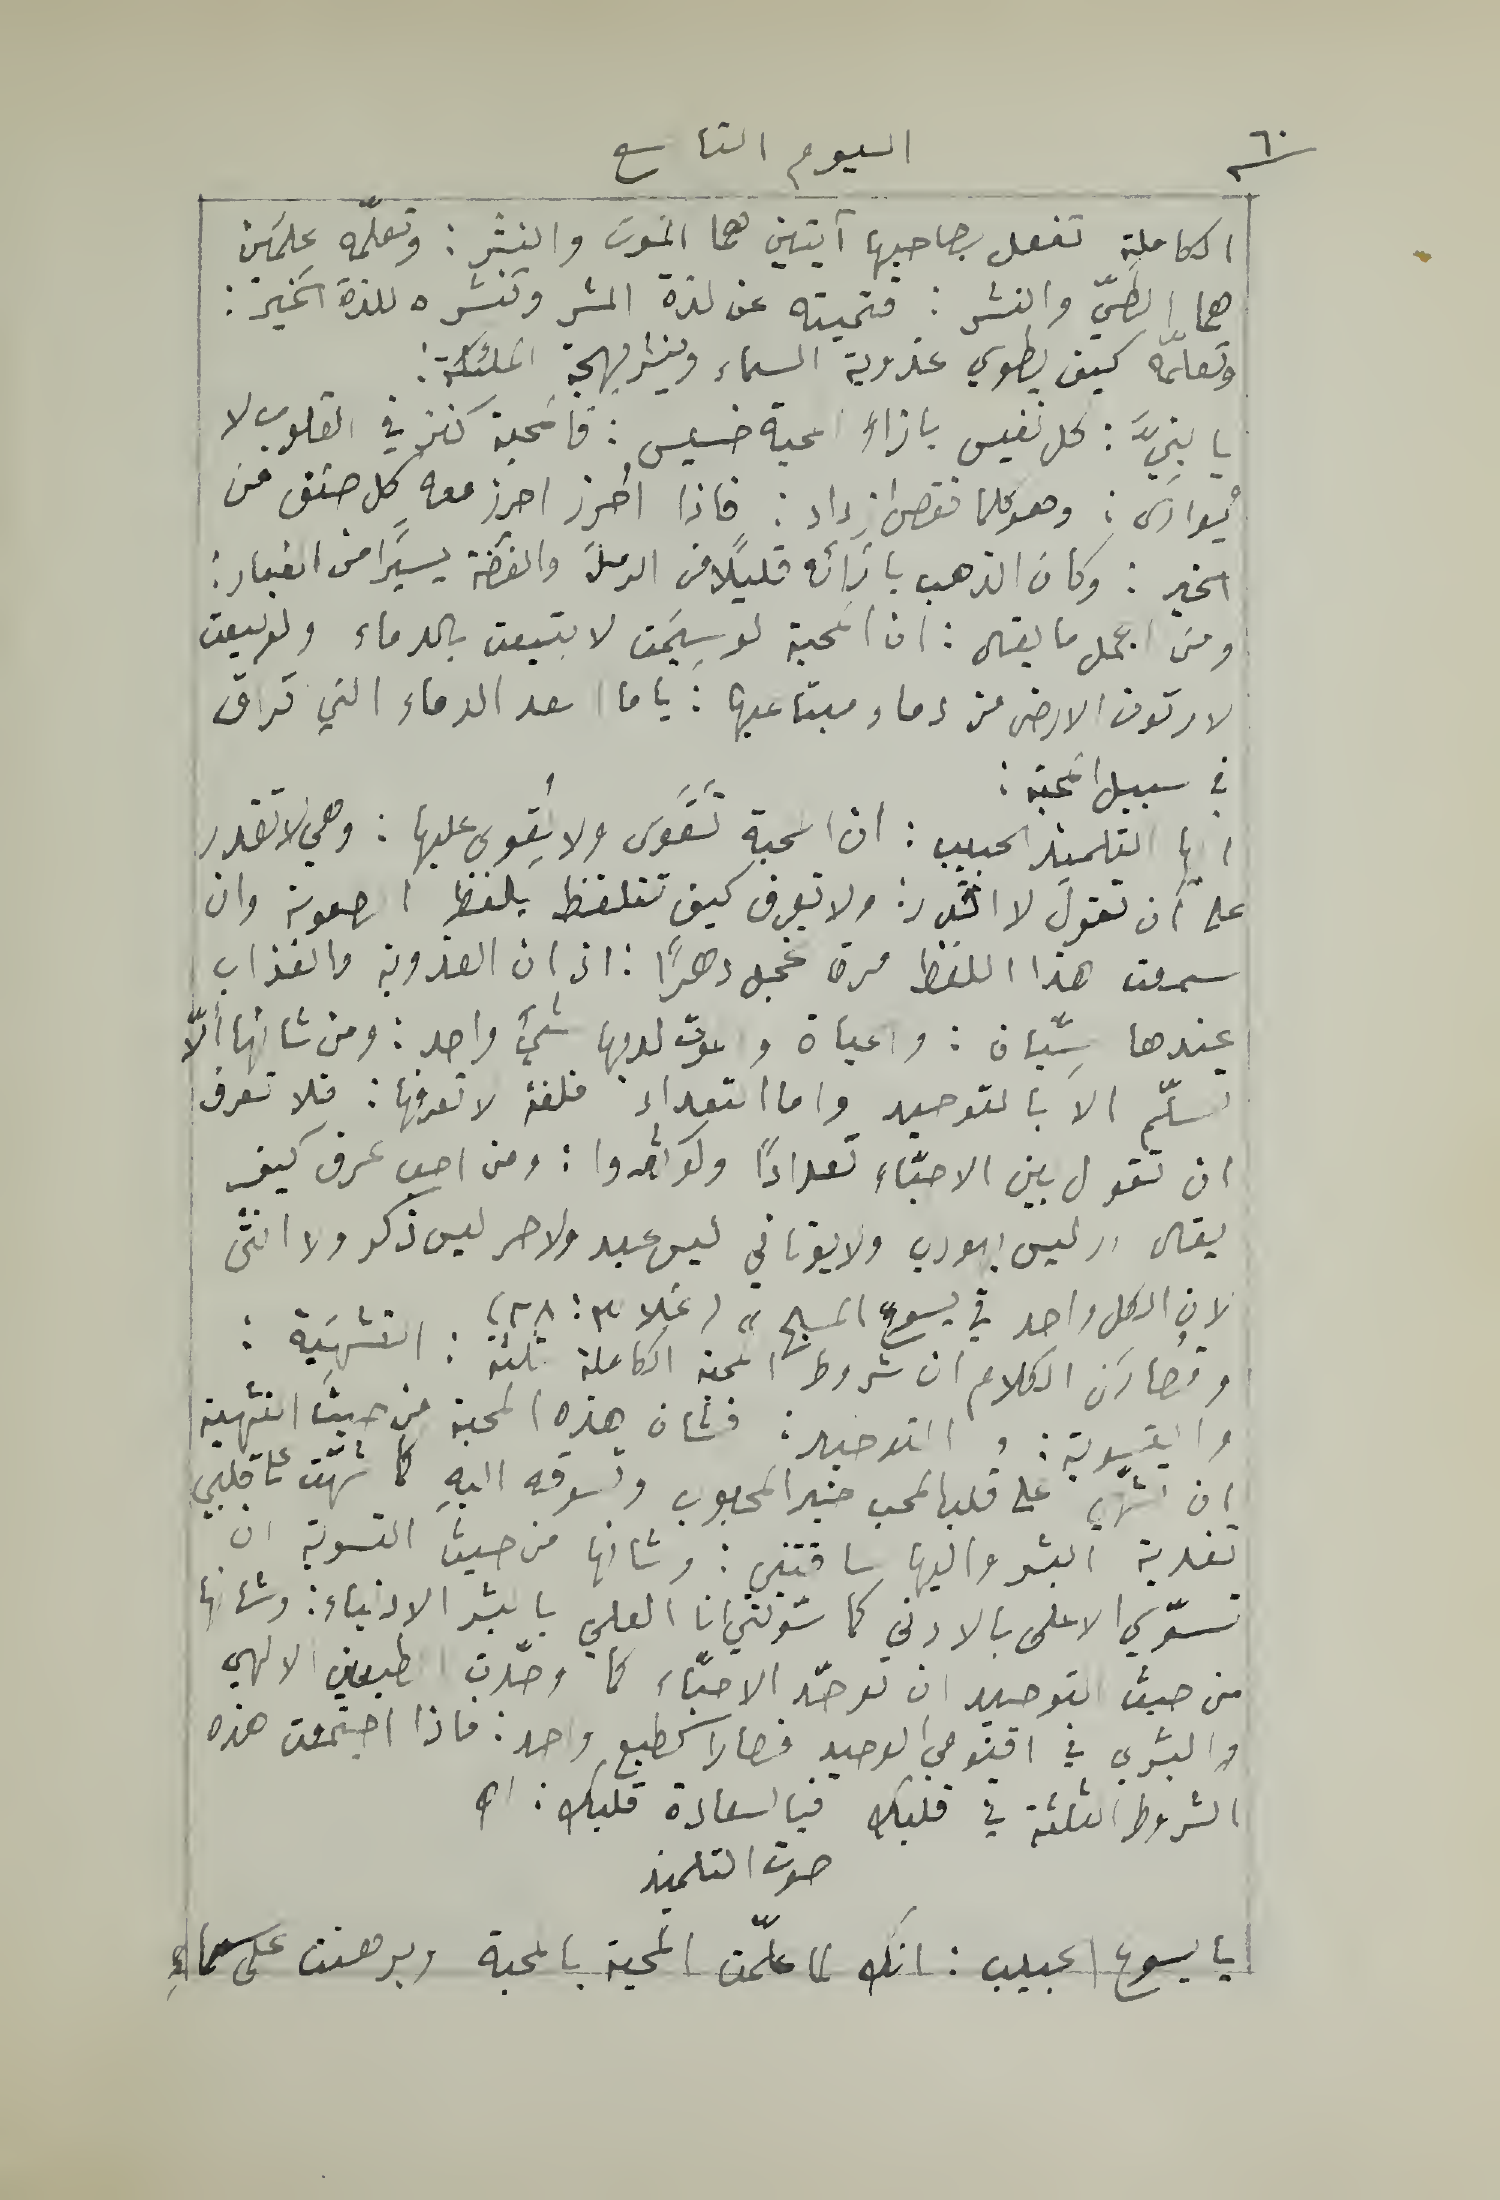 ٦٠
اليوم التاسع
الكاملة تفعل بصاحبها آيتين هما الموت والنشر : وتعلّمه علمَين
هما الطيّ والنشر : فتميته عن لذة الشر وتنشره للذة الخير :
وتعلّمه كيف يطوي عذوبة السماء وينشر بهجة الملئكة :
يا بنيَّ : كل نفيس بازاء المحبة خسيس : فالمحبة كنز في القلوب لا
يُوازى : وهو كلما نقص ازداد : فاذا أُحرز احرز معه كل صنف من
الخير : وكان الذهب بازائه قليلًا من الرمل والفضّة يسيرًا من الغبار :
ومن اجمل ما يقال : ان المحبة لو سِيمَت لابتيعت بالدماء ولو بيعت
لارتوت الارض من دماء مبتاعيها : يا ما اسعد الدماء التي تراق
في سبيل المحبة :
ايها التلميذ الحبيب : ان المحبة تَقوَى ولا يُقوى عليها : وهي لا تقدر
على أن تقول لا اقدر : ولا تعرف كيف تتلفظ بلفظ الصعوبة وان
سمعت هذا اللفظ مرة تخجل دهرًا : اذ ان العذوبة والعذاب
عندها سِيّان : والحياة والموت لديها شيءٌ واحد : ومن شانها ألّا
تسلّم الا بالتوحيد واما التعداد فلغة لا تعرفها : فلا تعرف
ان تقول بين الاحبّاء تعدادًا ولو كثروا : ومن احب عرف كيف
يقال «ليس يهودي ولا يوناني ليس عبد ولا حر ليس ذكر ولا انثى
لان الكل واحد في يسوع المسيح» (غلا ٣ : ٢٨)
وقُصارَى الكلام ان شروط المحبة الكاملة ثلثة : التشهِيَة :
والتسوية : والتوحيد : فشان هذه المحبة من حيث التشهية
ان تشهّي على قلب المحب خير المحبوب وتسوقه اليهِ كما شهّت على قلبي
تفدية البشر واليها ساقتني : وشانها من حيث التسوية ان
تسوّي الاعلى بالادنى كما سوّتني انا العلي بالبشر الادنياء : وشانها
من حيث التوحيد ان توحّد الاحبّاء كما وحّدت الطبعين الالهي
والبشري في اقنومي الوحيد فصارا كطبع واحد : فاذا اجتمعت هذه
الشروط الثلثة في قلبك فيا لسعادة قلبك : اه
صوت التلميذ
يا يسوع الحبيب : انك لما علّمت المحبة بالمحبة وبرهنت على